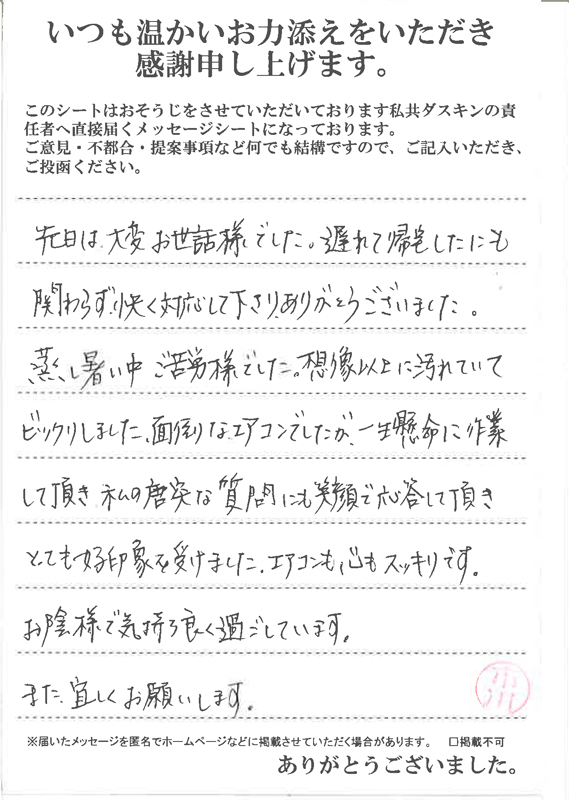 いつも温かいお力添えをいただき
感謝申し上げます。
このシートはおそうじをさせていただいております私共ダスキンの責
任者へ直接届くメッセージシートになっております。
ご意見・不都合・提案事項など何でも結構ですので、ご記入いただき、
ご投函ください。
先日は、大変お世話様でした。遅れて帰宅したにも
関わらず、快く対応して下さり、ありがとうございました。
蒸し暑い中 ご苦労様でした。想像以上に汚れていて
ビックリしました、面倒なエアコンでしたが、一生懸命に作業
して頂き 私の唐突な質問にも笑顔で応答して頂き
とても好印象を受けました、エアコンも心もスッキリです。
お陰様で気持ち良く過ごしています。
また、宜しくお願いします。
※届いたメッセージを匿名でホームページなどに掲載させていただく場合があります。 □掲載不可
ありがとうございました。